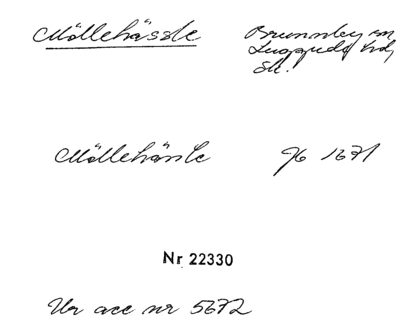 Möllehässle
Brunnby sn
Luggude hd,
Sk.
Möllehässle
Jb 1671
Nr 22330
Ur acc nr 5672